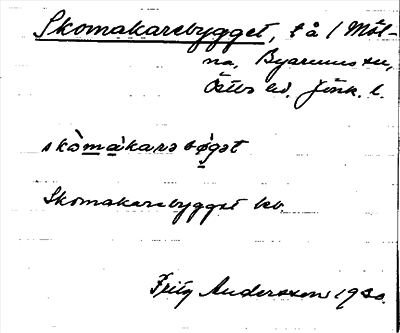 Skomakarebygget, t å / Möl-
na, Byarums sn,
Östbo hd. Jönk. l.
skòmàkarə bøgət
Skomakarebygget kb.
Fritz Andersson 1930.